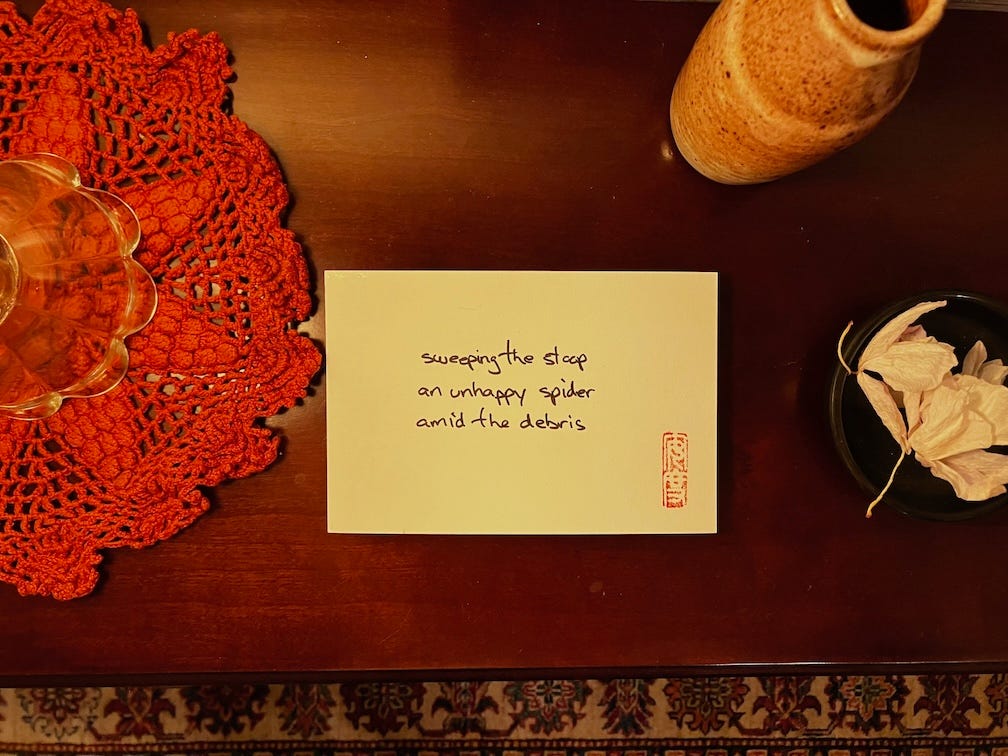 sweeping the stoop
an unhappy spider
amid the debris